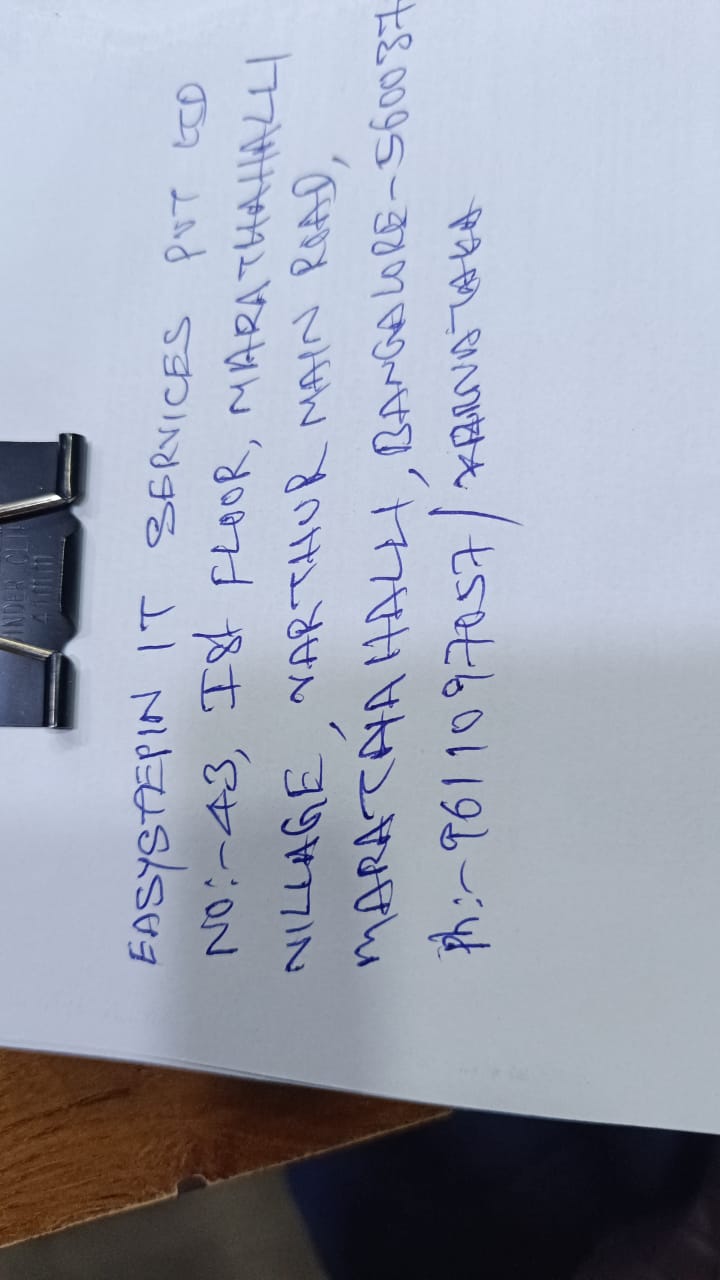 EASYSTEPIN IT SERVICES PVT LTD
NO:-43, Ist FLOOR, MARATHAHALLI
VILLAGE, VARTHUR MAIN ROAD,
MARATHAHALLI, BANGALORE-560037
Ph:-9611097057 / KARNATAKA